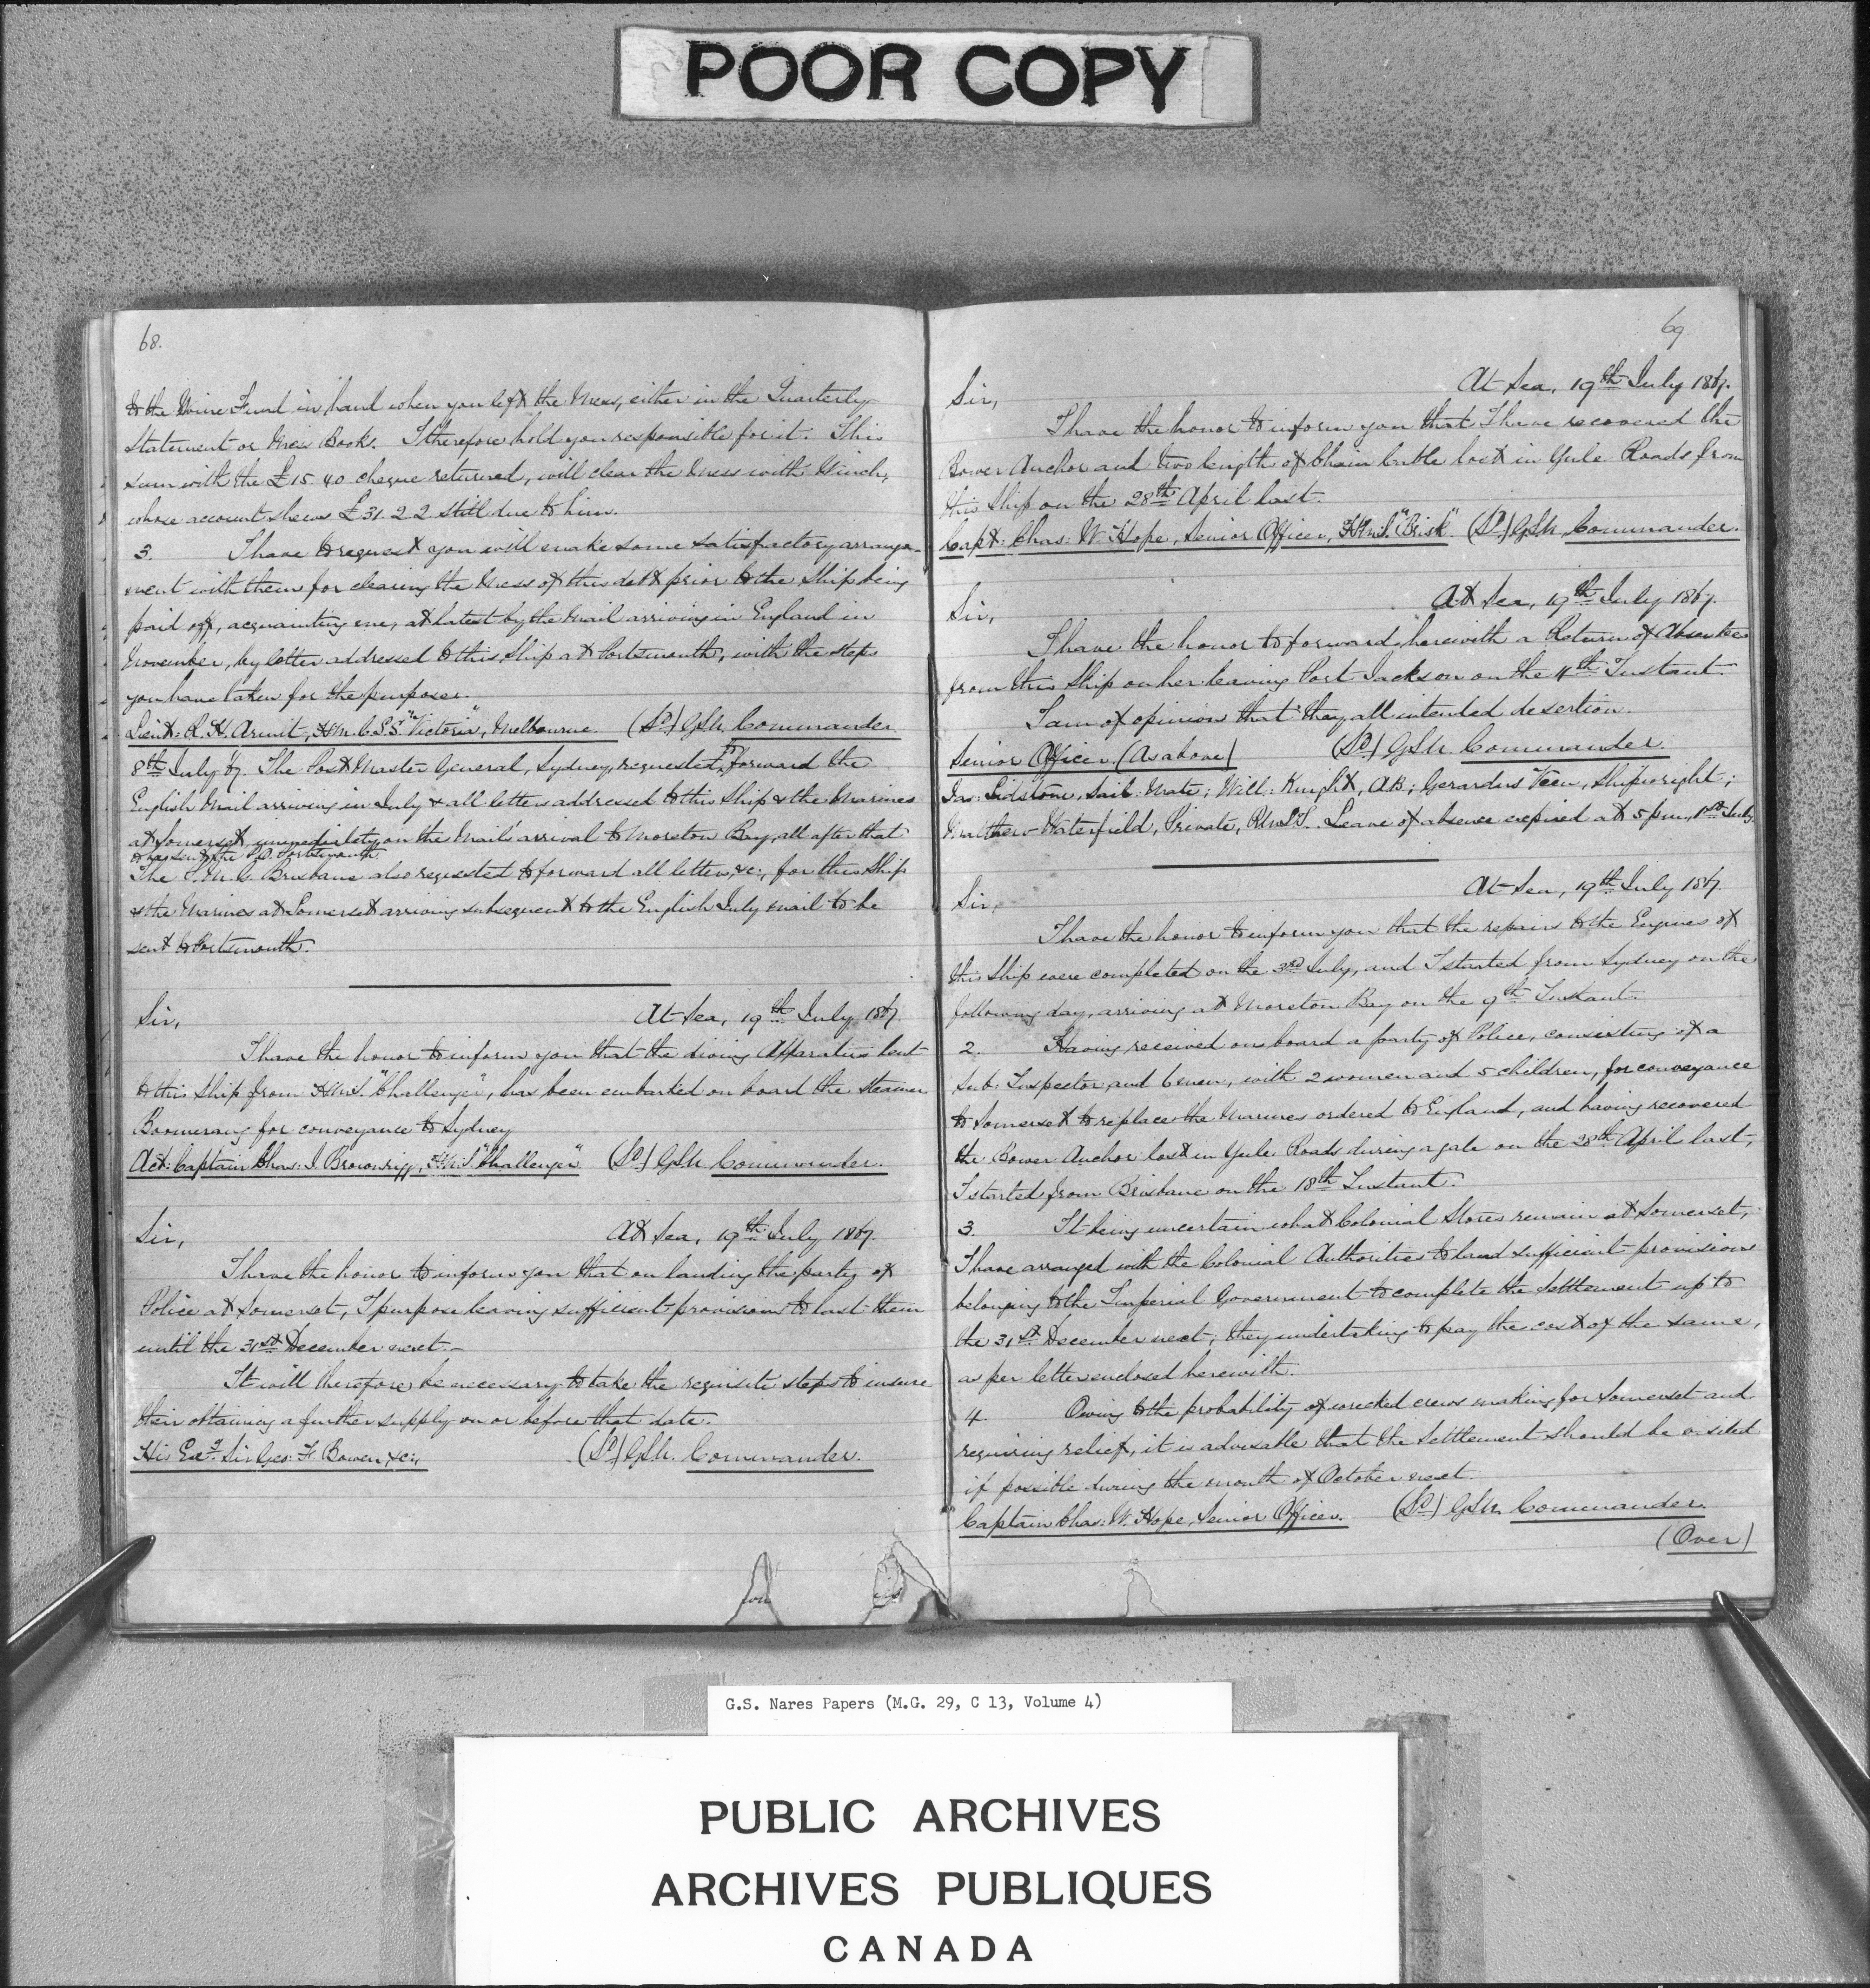 POOR COPY
68.
to the Wine Fund in hand when you left the Mess, either in the Quarterly
Statement or Mess Book. I therefore hold you responsible for it. This
sum with the £15.4.0 cheque returned, will clear the Mess with Winch,
whose account shews £31.2.2 still due to him.
3. I have to request you will make some satisfactory arrange-
ment with them for clearing the Mess of this debt prior to the Ship being
paid off, acquainting me, at latest by the Mail arriving in England in
November, by letter addressed to this Ship at Portsmouth, with the steps
you have taken for the purpose.
Lieut: R. H. Armit, H.M.C.S.S. "Victoria", Melbourne. (Sd) GSN. Commander
8th July 67. The Post Master General, Sydney, requested to forward the
English Mail arriving in July & all letters addressed to this Ship & the Marines
at Somerset, immediately on the Mail's arrival to Moreton Bay, all after that
to be sent to the P.O. Portsmouth.
The P.M.G. Brisbane also requested to forward all letters, &c:, for this Ship
& the Marines at Somerset arriving subsequent to the English July mail to be
sent to Portsmouth.
At Sea, 19th July 1867.
Sir,
I have the honor to inform you that the diving Apparatus lent
to this Ship from H.M.S. "Challenger", has been embarked on board the steamer
Boomerang for conveyance to Sydney
Act: Captain Chas: J. Brownrigg, H.M.S. "Challenger" (Sd) GSN. Commander.
At Sea, 19th July 1867.
Sir,
I have the honor to inform you that on landing the party of
Police at Somerset, I purpose leaving sufficient provisions to last them
until the 31st December next.-
It will therefore be necessary to take the requisite steps to insure
their obtaining a further supply on or before that date.
His Excy. Sir Geo: F. Bowen, &c:, (Sd) GSN. Commander.
69
At Sea, 19th July 1867.
Sir,
I have the honor to inform you that I have recovered the
Bower Anchor and two length of Chain Cable lost in Yule Roads from
this Ship on the 28th April last.
Capt: Chas: W. Hope, Senior Officer, H.M.S. "Brisk" (Sd) GSN. Commander.
At Sea, 19th July 1867.
Sir,
I have the honor to forward herewith a Return of Absentees
from this Ship on her leaving Port Jackson on the 4th Instant.
I am of opinion that they all intended desertion.
Senior Officer. (As above) (Sd) GSN. Commander.
Jas: Lidstone, Sail: Mate; Will: Knight, AB; Gerardus Veen, Shipwright;
Matthew Waterfield, Private, R.M.L.I. Leave of absence expired at 5 pm, 1st July.
At Sea, 19th July 1867.
Sir,
I have the honor to inform you that the repairs to the Engines of
this Ship were completed on the 3rd July, and I started from Sydney on the
following day, arriving at Moreton Bay on the 9th Instant.
2. Having received on board a party of Police, consisting of a
Sub: Inspector and 6 men, with 2 women and 5 children, for conveyance
to Somerset to replace the Marines ordered to England, and having recovered
the Bower Anchor lost in Yule Roads during a gale on the 28th April last,
I started from Brisbane on the 18th Instant.
3. It being uncertain what Colonial Stores remain at Somerset,
I have arranged with the Colonial Authorities to land sufficient provisions
belonging to the Imperial Government to complete the Settlement up to
the 31st December next; they undertaking to pay the cost of the same,
as per letter enclosed herewith.
4. Owing to the probability of wrecked crews making for Somerset and
requiring relief, it is advisable that the Settlement should be visited
if possible during the month of October next.
Captain Chas: W. Hope, Senior Officer. (Sd) GSN. Commander.
(Over)
G.S. Nares Papers (M.G. 29, C 13, Volume 4)
PUBLIC ARCHIVES
ARCHIVES PUBLIQUES
CANADA